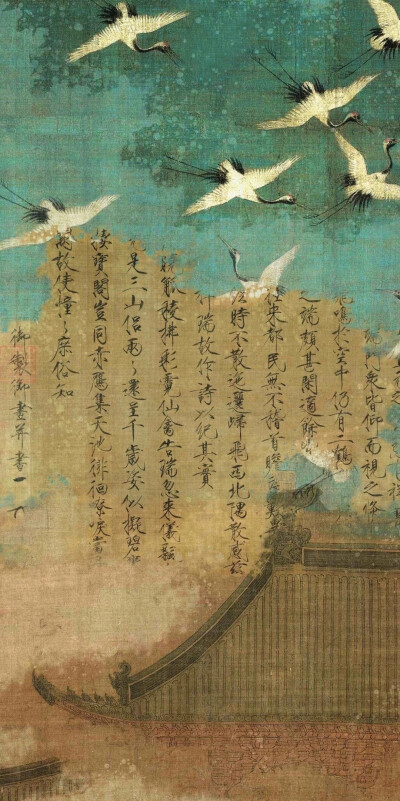 門眾皆仰而視之倏
飛鳴於空中仍有二鶴
之端頗甚閑適餘
往來都民無不稽首瞻
經時不散迤邐歸飛西北隅散感茲
祥瑞故作詩以紀其實
觚稜拂彩霓仙禽告瑞忽來儀飄
元是三山侶兩〻還呈千歲姿似擬碧
棲寶閣豈同赤雁集天池徘徊嘹唳當
闕故使憧〻庶俗知
御製御畫并書